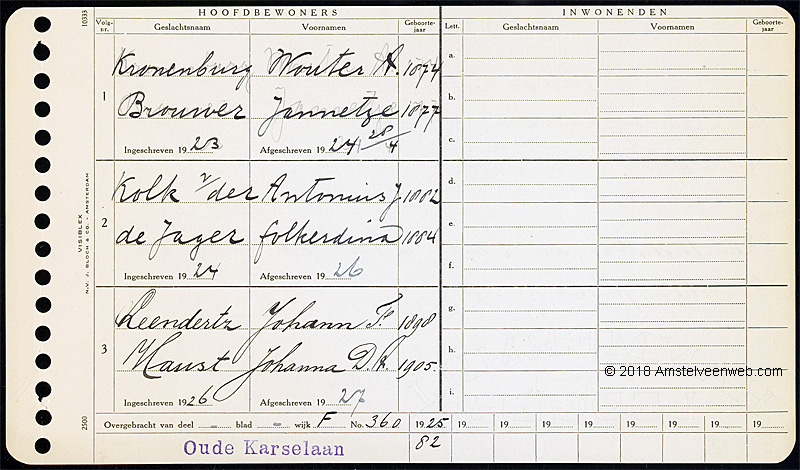 HOOFDBEWONERS INWONENDEN
Volg-nr. Geslachtsnaam Voornamen Geboorte-jaar Lett. Geslachtsnaam Voornamen Geboorte-jaar
10333
1
Kronenburg Wouter A. 1874
Brouwer Jannetze 1877
Ingeschreven 1923 Afgeschreven 1924 28/4
a.
b.
c.
2
Kolk v/der Antonius J. 1882
de Jager Folkerdina 1884
Ingeschreven 1924 Afgeschreven 1926
d.
e.
f.
3
Leendertz Johann F. 1898
Haust Johanna D.A. 1905
Ingeschreven 1926 Afgeschreven 1927
g.
h.
i.
VISIBLEX
N.V. J. BLOCH & CO. - AMSTERDAM
2500
© 2018 Amstelveenweb.com
Overgebracht van deel – blad – wijk F No. 360 1925 19 19 19 19 19 19 19 19
82
Oude Karselaan